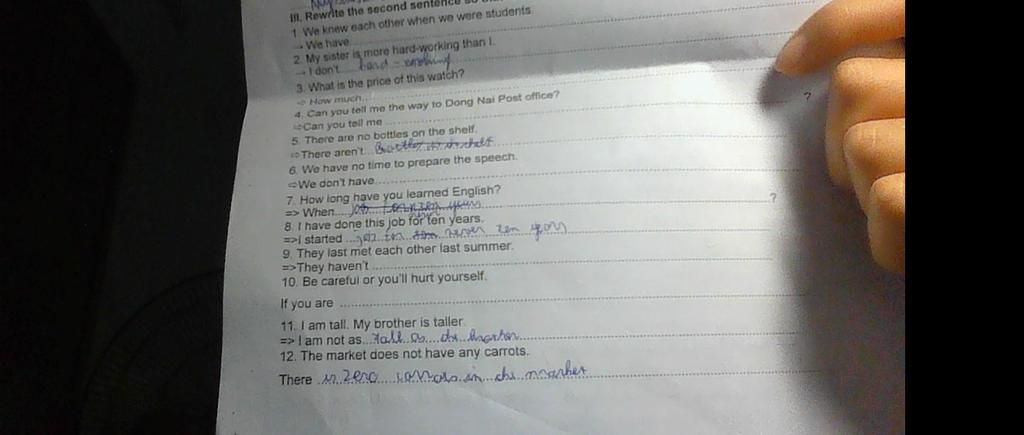 III. Rewrite the second sentence so
1. We knew each other when we were students
→ We have
2. My sister is more hard-working than I.
→ I don't hard - working
3. What is the price of this watch?
⇨ How much
4. Can you tell me the way to Dong Nai Post office?
⇨Can you tell me ?
5. There are no bottles on the shelf.
⇨There aren't
6. We have no time to prepare the speech.
⇨We don't have
7. How long have you learned English?
=> When ?
8. I have done this job for ten years.
=>I started job years
9. They last met each other last summer.
=>They haven't
10. Be careful or you'll hurt yourself.
If you are
11. I am tall. My brother is taller.
=> I am not as tall as the brother
12. The market does not have any carrots.
There is zero carrots in the market